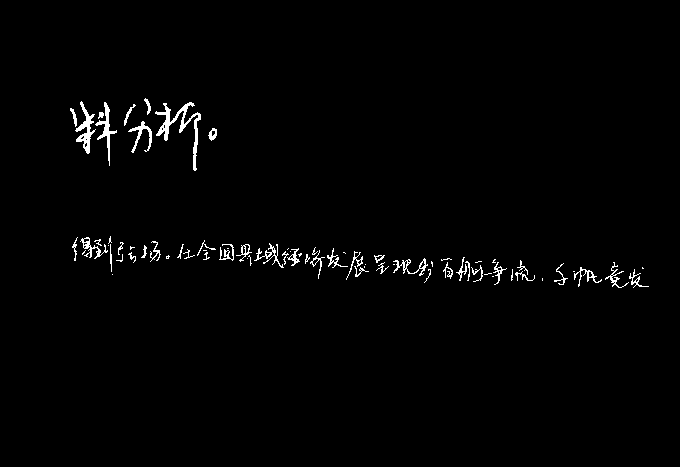 料分析。
得到弘扬。在全国县域经济发展呈现出百舸争流、千帆竞发